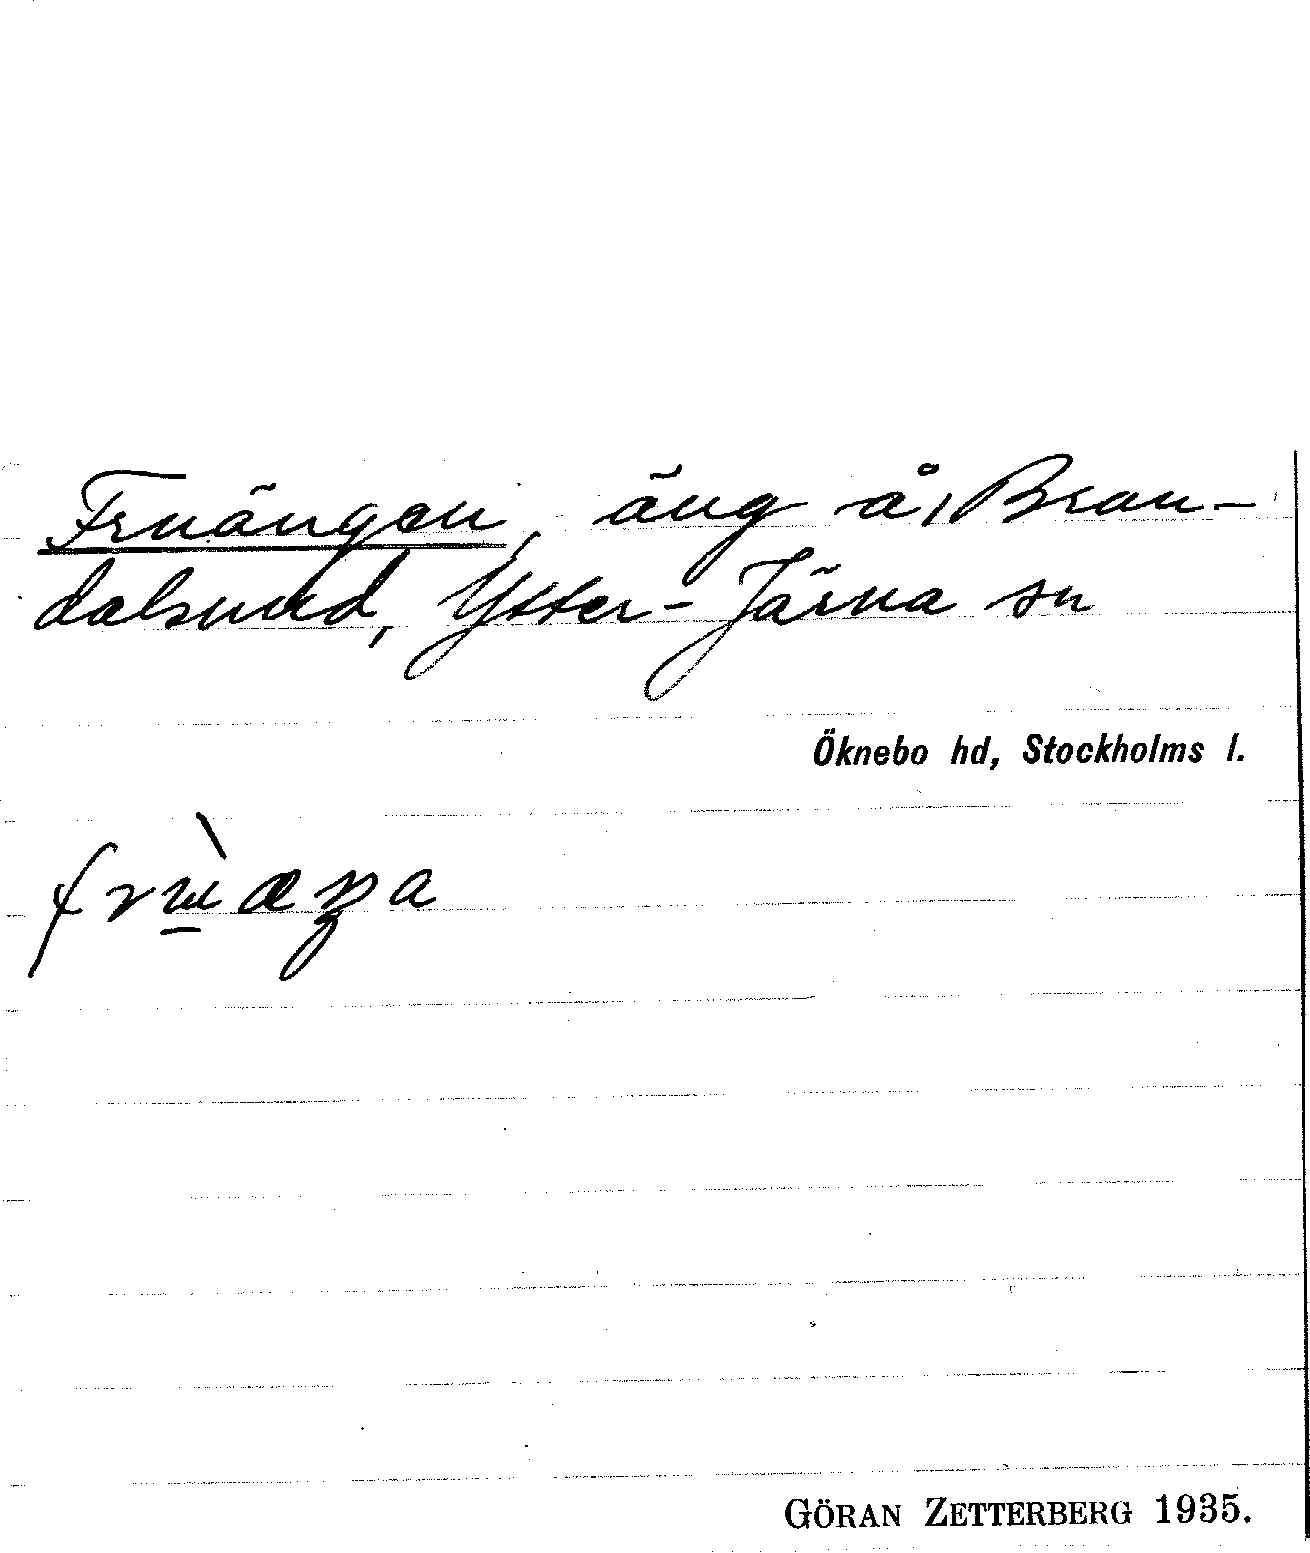 Fruängen, äng å, Bran-
dalsund, Ytter-Järna sn
Öknebo hd, Stockholms l.
GÖRAN ZETTERBERG 1935.